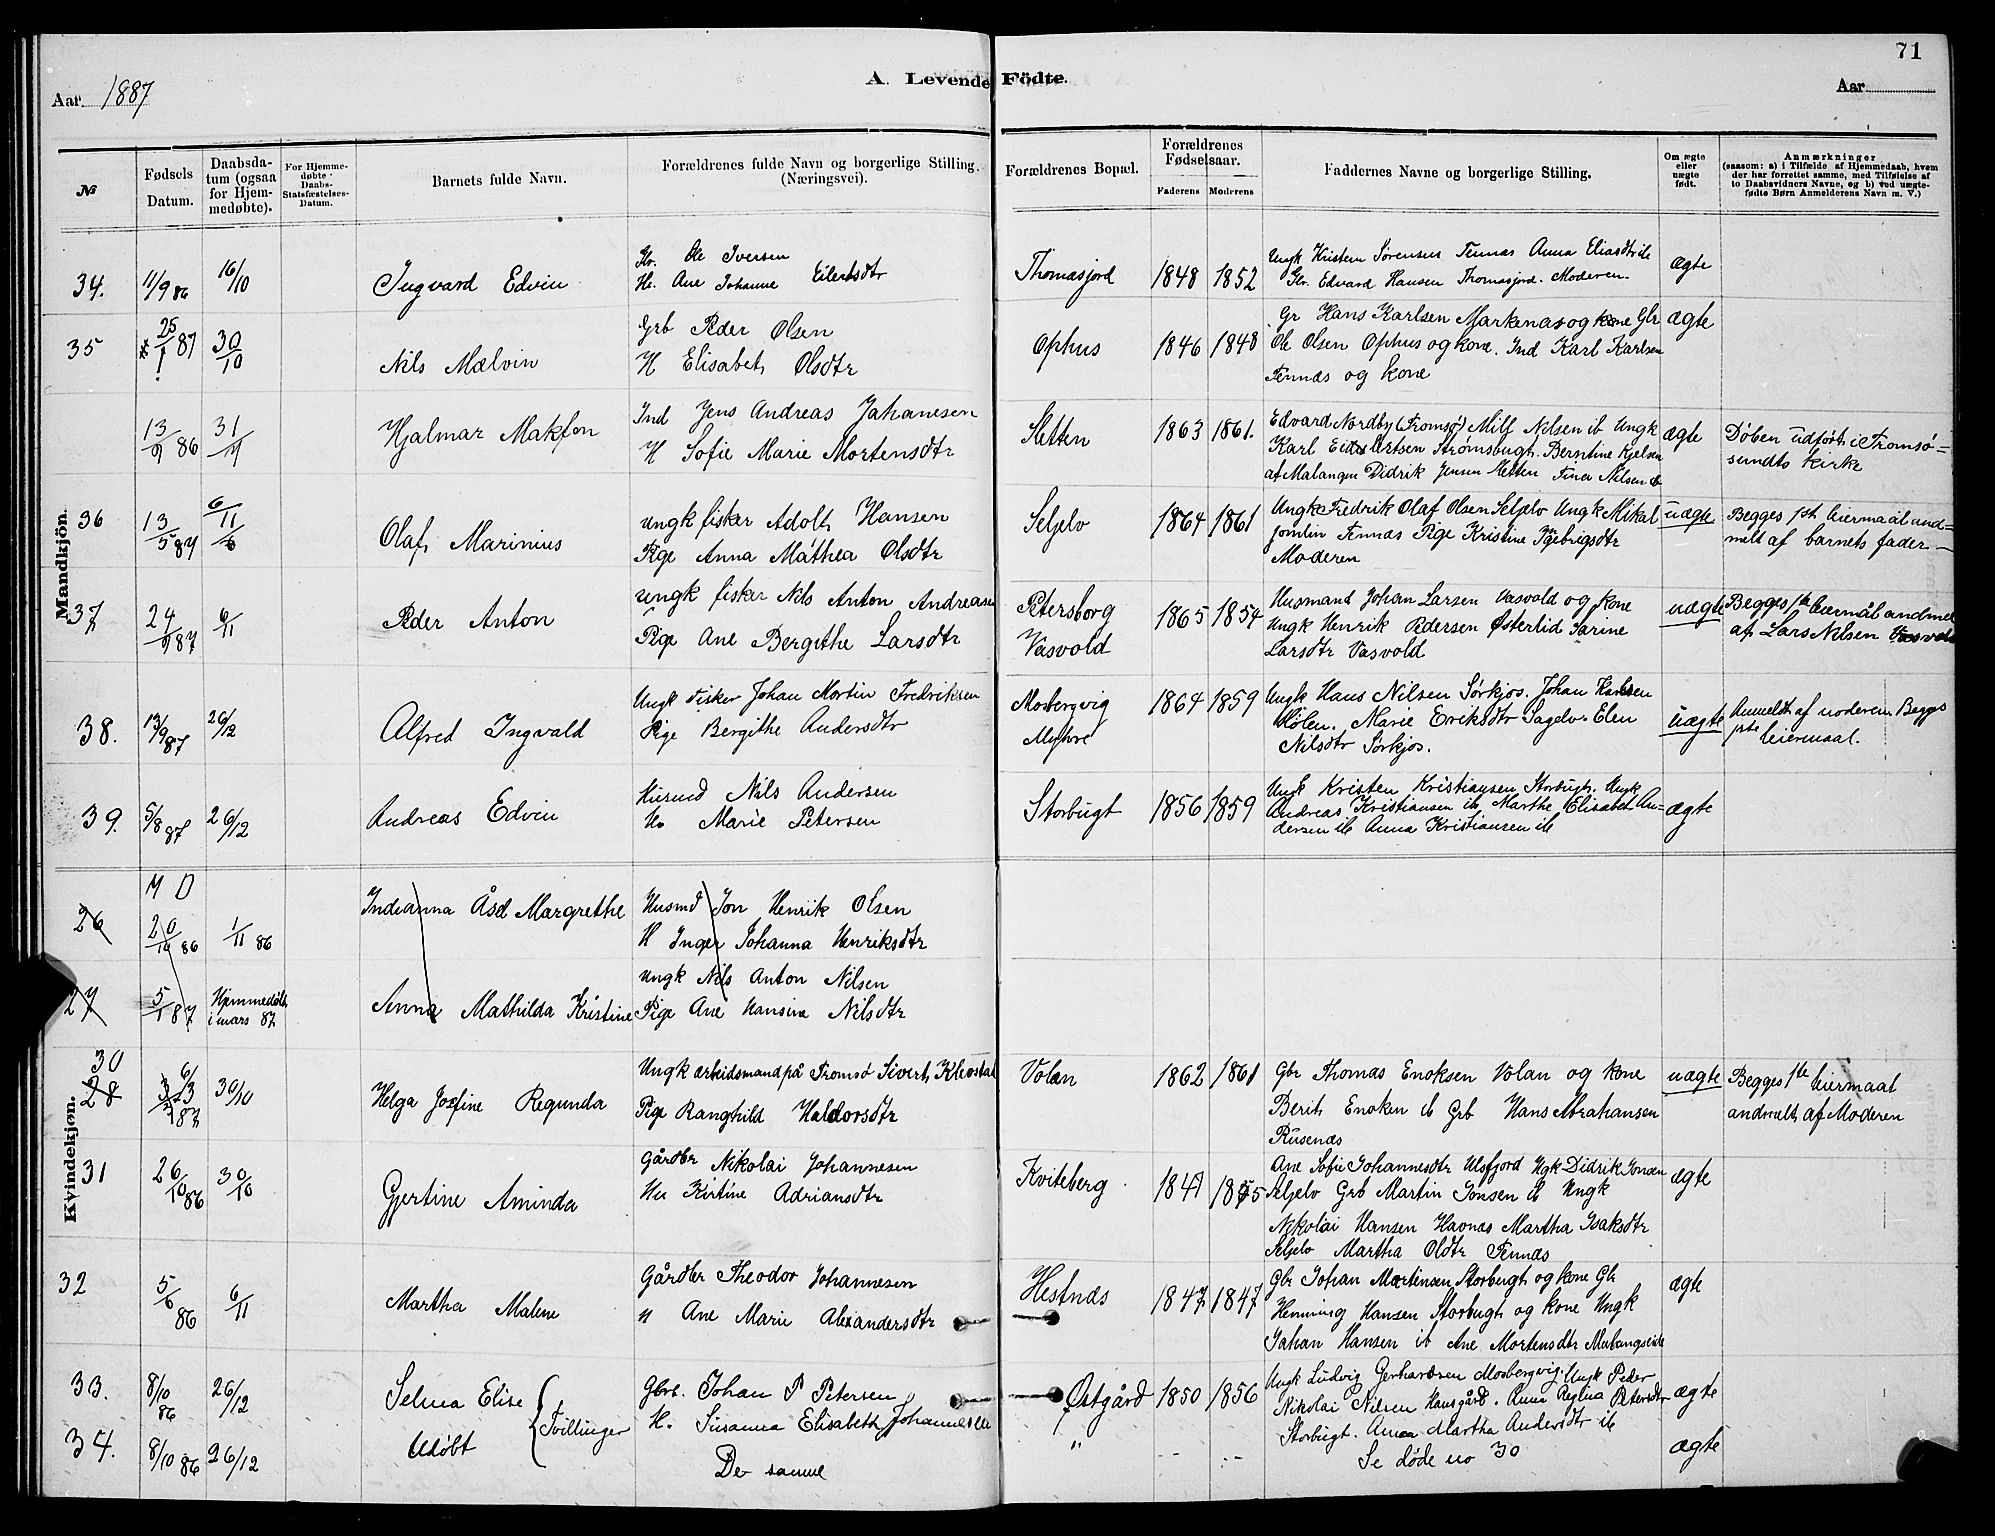 71
A. Levende Födte.
Aar 1887
Aar
№
Fødsels Datum.
Daabsdatum (ogsaa for Hjemmedøbte).
For Hjemmedøbte Daabs-Statsfæstelses-Datum.
Barnets fulde Navn.
Forældrenes fulde Navn og borgerlige Stilling. (Næringsvei).
Forældrenes Bopæl.
Forældrenes Fødselsaar.
Faderens Moderens
Faddernes Navne og borgerlige Stilling.
Om ægte eller uægte født.
Anmærkninger
(saasom: a) i Tilfælde af Hjemmedaab, hvem der har forrettet samme, med Tilføielse af to Daabsvidners Navne, og b) ved uægtefødte Børn Anmelderens Navn m. V.)
Mandkjön.
34. 11/9 86 16/10 Ingvard Edvin
Gbr. Ole Iversen
H. Ane Johanne Eilertsdtr
Thomasjord 1848 1852
Ungk Kristen Sørensen Tennæs Anna Eliasdtr ib
Gbr. Edvard Hansen Thomasjord. Moderen.
ægte
35 25/1 87 30/10 Nils Mælvin
Grb Peder Olsen
H Elisabet Olsdtr
Ophus 1846 1848
Gr Hans Karlsen Markenæs og kone Gbr
Ole Olsen Ophus og kone. Ind Karl Karlsen
Tennæs og kone
ægte
13/9 86 31/11 Hjalmar Makfon
Ind Jens Andreas Johanesen
H Sofie Marie Mortensdtr
Sletten 1863 1861.
Edvard Nordby (Tromsø) Milf Nilsen ib Ungk
Karl Eilertsen Strømsbugt. Berntine Kjelsen
af Malangen Didrik Jensen Sletten Tina Nilsen ib
ægte
Døben udført i Tromsø=
sundts kirke
36 13/5 87 6/11 Olaf Marinius
Ungk fisker Adolt Hansen
Pige Anna Mathea Olsdtr
Seljelv 1864 1861
Ungk Fredrik Olaf Olsen Seljelv Ungk Mikal
Jomlin Tennæs Pige Kristine Ingebrigsdtr
Moderen
uægte
Begges 1ste leiermaal and=
melt af barnets fader
37 24/9 87 6/11 Peder Anton
Ungk fisker Nils Anton Andreasen
Pige Ane Bergithe Larsdtr
Petersborg
Vasvold
1865 1854
Husmand Johan Larsen Vasvold og kone
Ungk Henrik Pedersen Østerlid Sarine
Larsdtr Vasvold
uægte
Begges 1ste leiermål andmel
af Lars Nilsen Vasvold
38. 13/9 87 26/12 Alfred Ingvald
Ungk Fisker Johan Mortin Fredriksen
Pige Bergithe Andersdtr
Mosbergvig
Myhre
1864 1859
Ungk Hans Nilsen Sørkjos. Johan Karlsen
Hølen. Marie Eriksdtr Sagelv. Elen
Nilsdtr Sørkjos.
uægte
Anmeldt af moderen. Begges
1ste leiermaal.
39. 5/8 87 26/12 Andreas Edvin
Husmd Nils Andersen
H. Marie Petersen
Storbugt 1856 1859
Ungk Kristen Kristiansen Storbugt. Ungk
Andreas Kristiansen ib, Marthe Elisabet An=
dersen ib Anna Kristiansen ib
ægte
M D
26 20/10 86 1/11 86 Indianna Åsd Margrethe
Husmd Jon Henrik Olsen
H Inger Johanna Henriksdtr
27 5/1 87 Hjemmedøbt
i mars 87
Anna Mathilda Kristine
Ungk Nils Anton Nilsen
Pige Ane Hansine Nilsdtr
Kvindekjön.
30
28 30/10 Helga Josfine Regunda
Ungk arbeidsmand på Tromsø Sivert Klevstad
Pige Ranghild Haldorsdtr
Volan 1862 1861
Gbr Thomas Enoksen Volan og kone
Berit Enoken ib Grb Hans Abrahansen
Rusenæs
uægte
Begges 1ste leiermaal
andmelt af Moderen
31 26/10 86 30/10 Gjertine Aminda
Gårdbr Nikolai Johannesen
Hu Kirtine Adriansdtr
Kviteberg 1847 1855
Ane Sofie Johannesdtr Ulsfjord Ugk Didrik Jonsen
Seljelv Grb Martin Jonsen ib Ungk
Nikolai Hansen Havnæs Martha Isaksdtr
Seljelv Martha Oldtr Tennæs
ægte
32 5/6 86 6/11 Martha Malene
Gårdbr Theodor Johannesen
H Ane Marie Alexandersdtr
Hestnæs 1847 1847
Gbr Johan Mortensen Storbugt og kone Gbr
Henning Hansen Storbugt og kone Ungk
Johan Hansen ib Ane Mortensdtr Malangseide
ægte
33. 8/10 86 26/12 Selma Elise
Tvillinger
Gbr. Johan P Petersen
H. Susanna Elisabeth Johannesen
Østgård 1850 1856
Ungk Ludvig Gerhardsen Mosbergvig. Ungk Peder
Nikolai Nilsen Hansgård. Anna Regina Petersdtr
Storbugt. Anna Martha Andersdtr ib
ægte
34. 8/10 86 26/12 Udøbt
De samme
" -- --
Se døde no 30
ægte